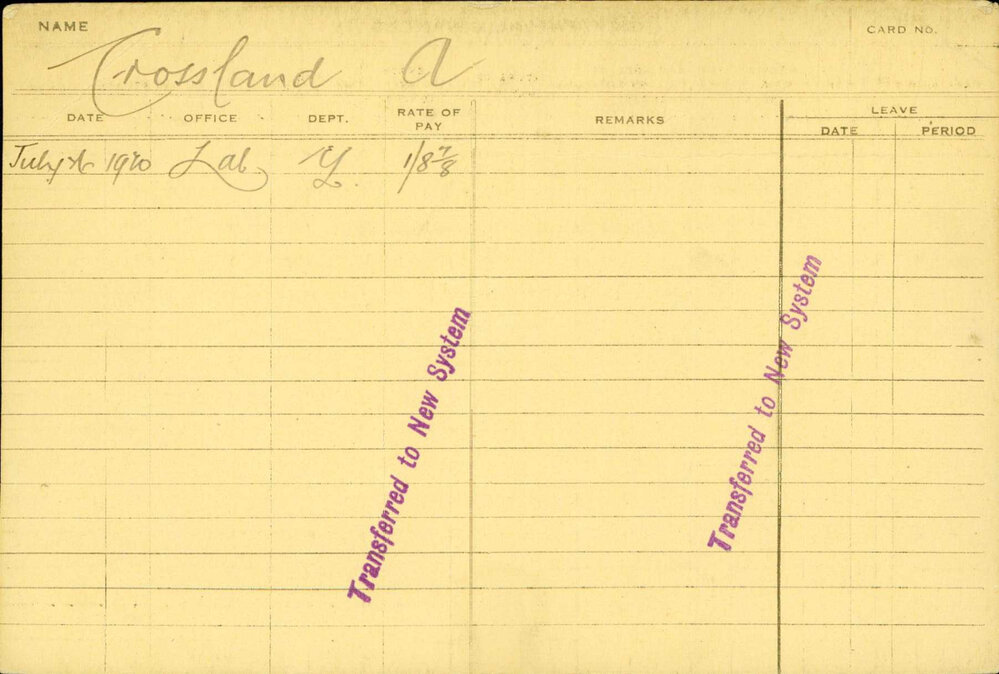 NAME Crossland A CARD NO.
DATE OFFICE DEPT. RATE OF PAY REMARKS LEAVE
DATE PERIOD
July 1920 Lab. Y. 1/8 7/8
Transferred to New System
Transferred to New System